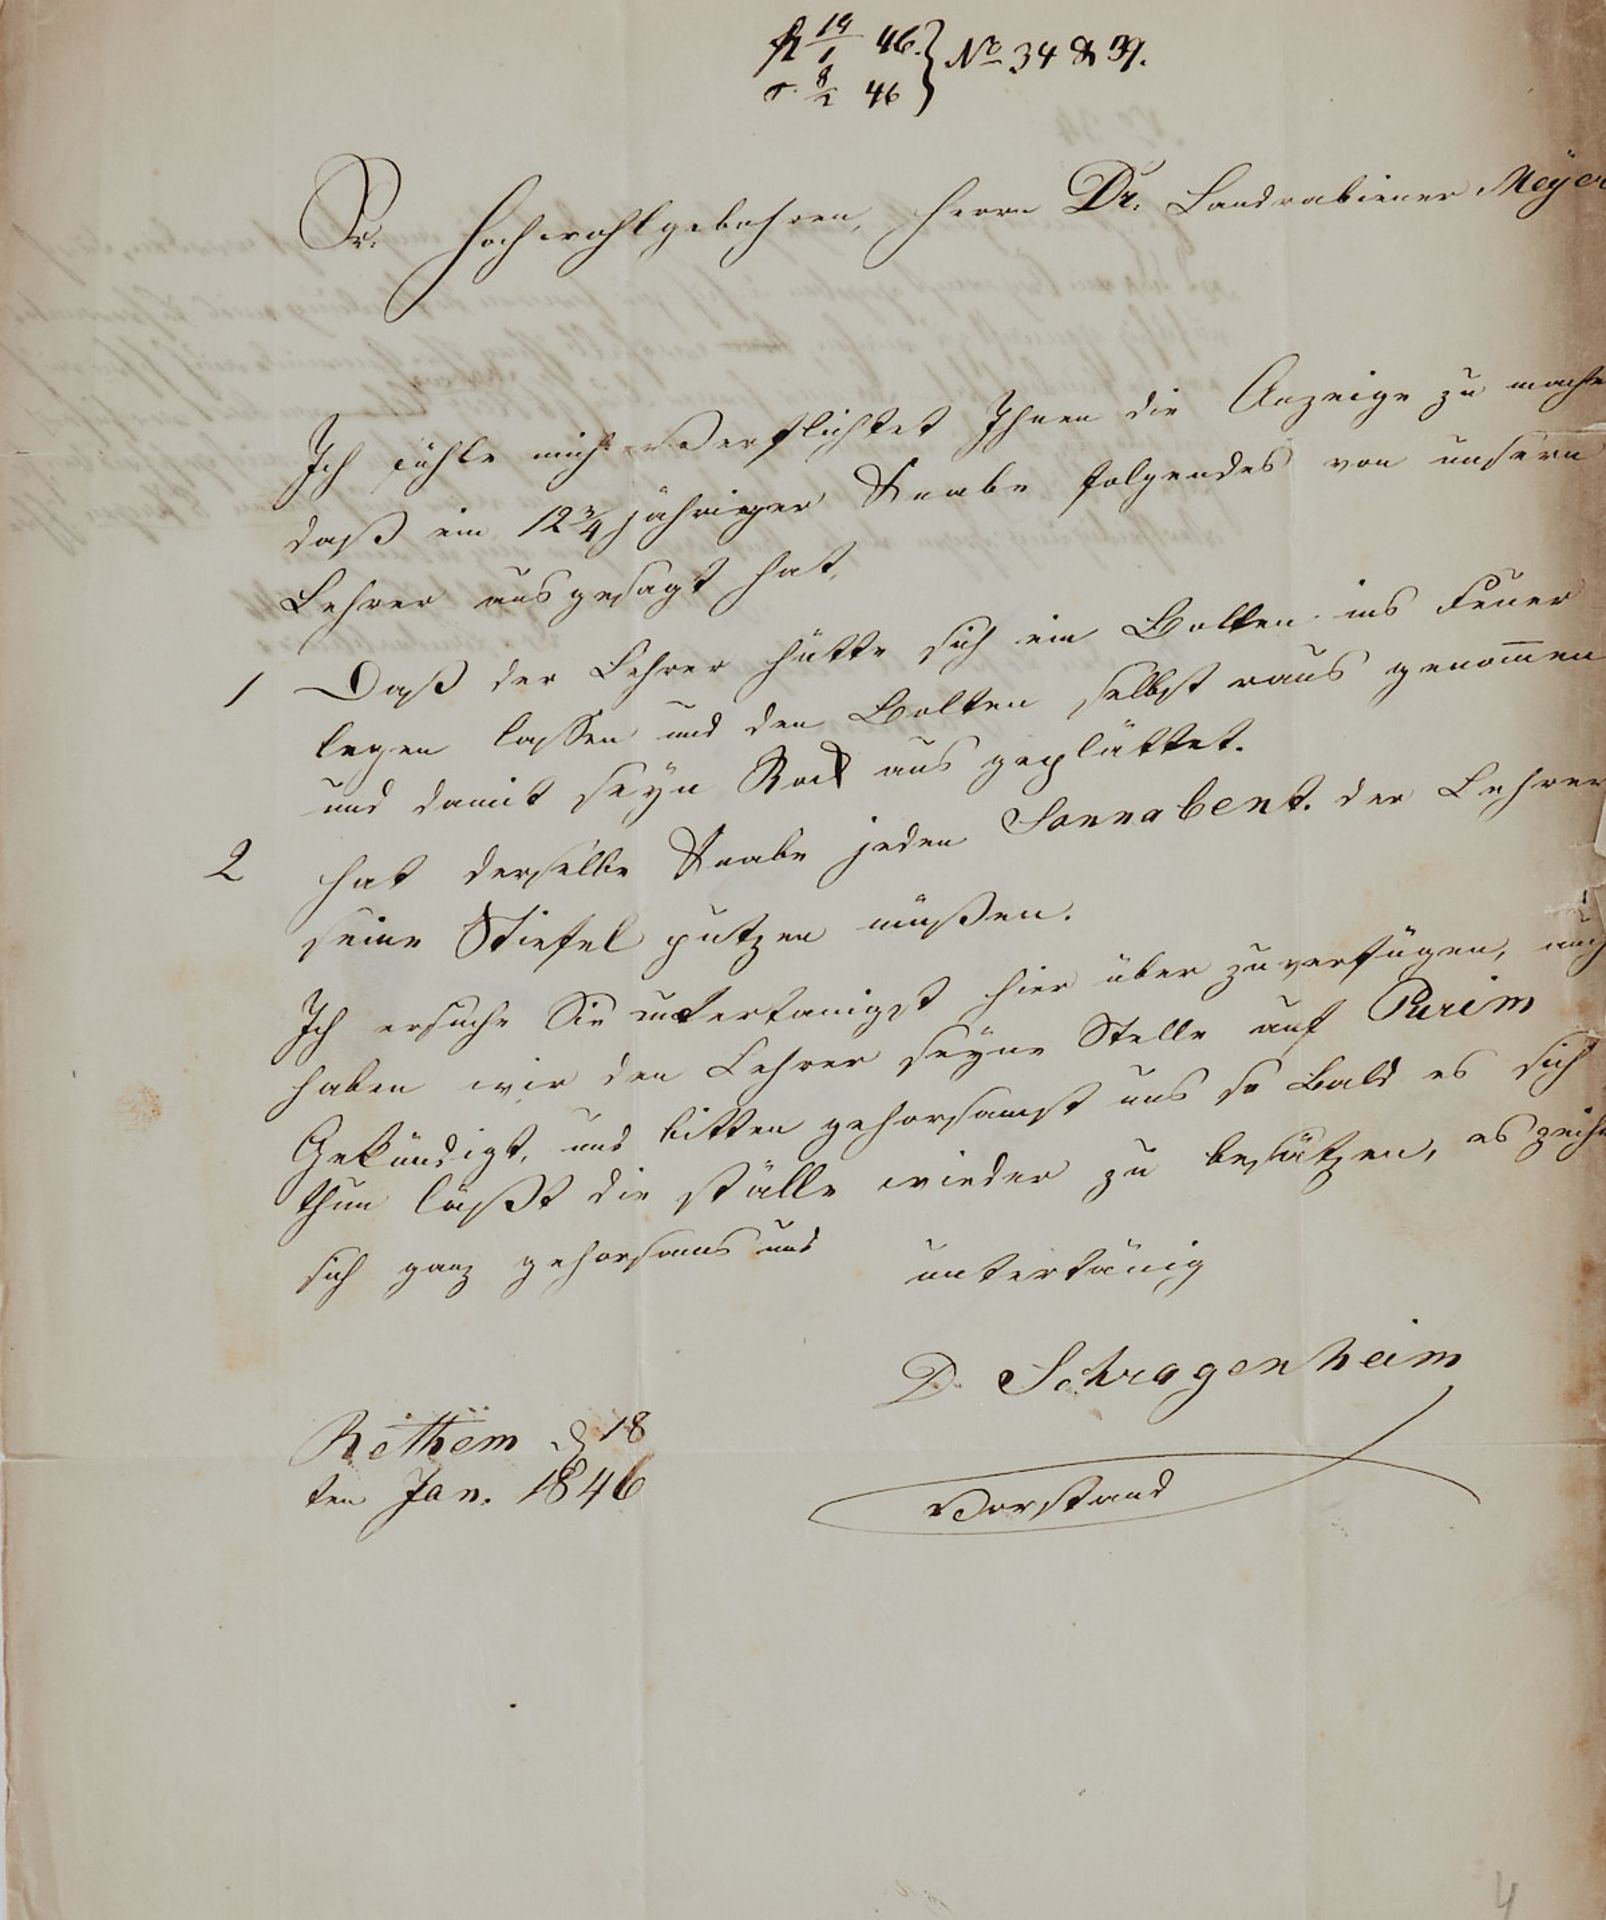 19/1 46. } No 34 & 39.
8/2 46
Sr. Hochwohlgebohren, Herrn Dr. Landrabiener Meÿer
Ich fühle mich Verpflichtet Ihnen die Anzeige zu mache
daß ein 12 3/4 jähriger Knabe folgendes von unsern
Lehrer ausgesagt hat,
1 Daß der Lehrer hätte sich ein Bolten ins Feuer
legen lassen und den Bolten selbst raus genom̅en
und damit seÿn Rock aus geplättet.
2 hat derselbe Knabe jeden Sonnabent. der Lehrer
seine Stiefel putzen müßen.
Ich ersuche Sie untertanigst hier über zu verfügen, auch
haben wir den Lehrer seÿne Stelle auf Purim
Gekündigt, und bitten gehorsamst uns so Bald es sich
thun läßt die ställe wieder zu besätzen, es zeihn
sich ganz gehorsams und untertänig
D. Schragenheim
Rethem d 18
ten Jan. 1846
Vorstand
4